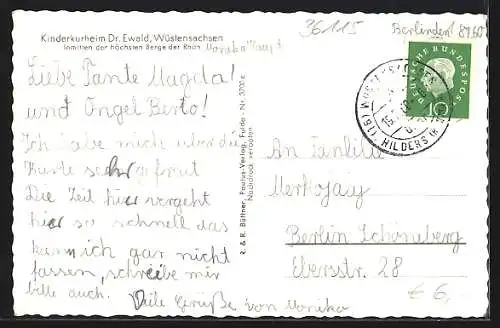 Kinderkurheim Dr. Ewald, Wüstensachsen
Inmitten der höchsten Berge der Rhön
36115
Berlinden! 8960
Liebe Tante Magda!
und Ongel Berto!
Ich abe mich über die
Karte sehr gefreut
Die Zeit hier vergeht
hier so schnell das
kann ich gar nicht
fassen, schreibe mir
bitte auch. Viele Grüße von Monika
R. & R. Büttner, Paulus-Verlag, Fulda - Nr. 3701 c
Nachdruck verboten
DEUTSCHE BUNDESPOST
10
(16) WÜSTENSACHSEN
HILDERS (RHÖN)
An Familie
Merkojay
Berlin Schöneberg
Ebersstr. 28
€ 6,-